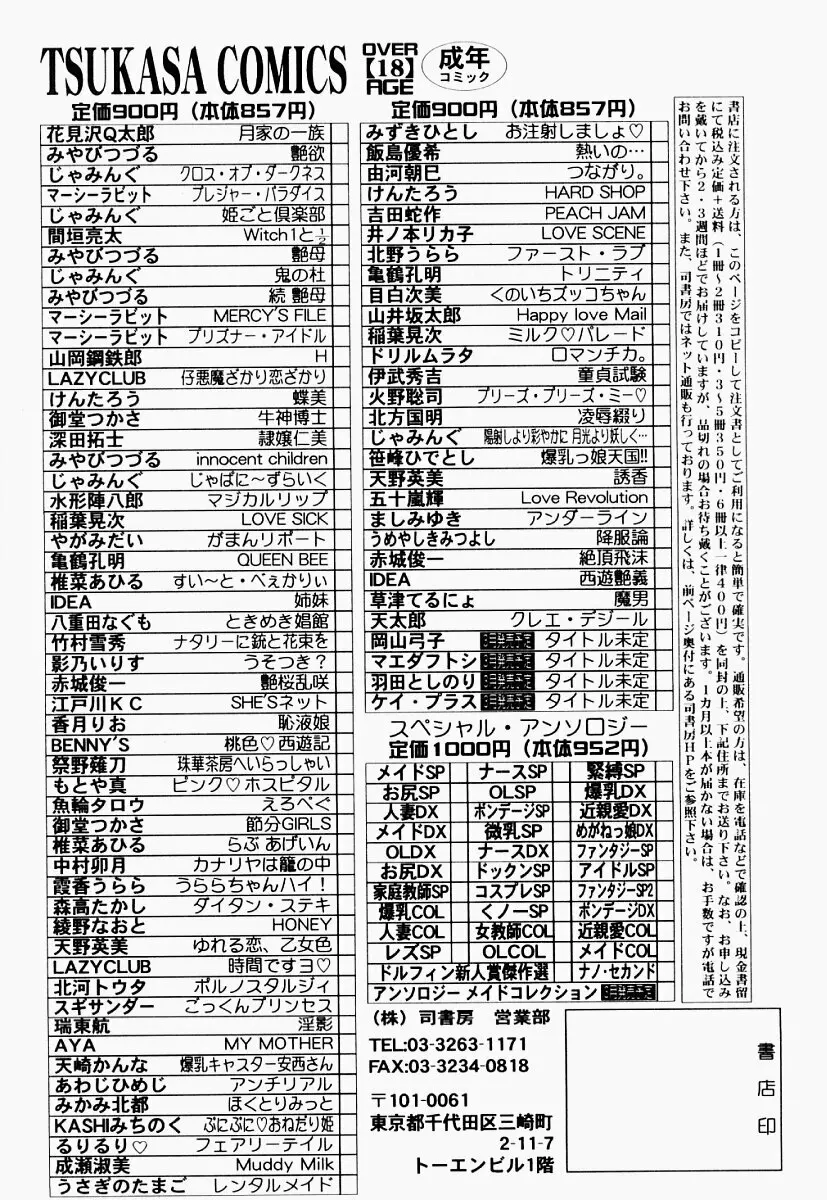 TSUKASA COMICS
OVER
【18】
AGE
成年
コミック
定価900円（本体857円）
花見沢Q太郎 月家の一族
みやびつづる 艶欲
じゃみんぐ クロス・オブ・ダークネス
マーシーラビット プレジャー・パラダイス
じゃみんぐ 姫ごと倶楽部
間垣亮太 Witch1と½
みやびつづる 艶母
じゃみんぐ 鬼の杜
みやびつづる 続 艶母
マーシーラビット MERCY'S FILE
マーシーラビット プリズナー・アイドル
山岡鋼鉄郎 H
LAZYCLUB 仔悪魔ざかり恋ざかり
けんたろう 蝶美
御堂つかさ 牛神博士
深田拓士 隷嬢仁美
みやびつづる innocent children
じゃみんぐ じゃぱに〜ずらいく
水形陣八郎 マジカルリップ
稲葉晃次 LOVE SICK
やがみだい がまんリポート
亀鶴孔明 QUEEN BEE
椎菜あひる すい〜と・べぇかりぃ
IDEA 姉妹
八重田なぐも ときめき娼館
竹村雪秀 ナタリーに銃と花束を
影乃いりす うそつき？
赤城俊一 艶桜乱咲
江戸川KC SHE'Sネット
香月りお 恥液娘
BENNY'S 桃色♡西遊記
祭野薙刀 珠華茶房へいらっしゃい
もとや真 ピンク♡ホスピタル
魚輪タロウ えろぺぐ
御堂つかさ 節分GIRLS
椎菜あひる らぶ あげいん
中村卯月 カナリヤは籠の中
霞香うらら うららちゃんハイ！
森高たかし ダイタン・ステキ
綾野なおと HONEY
天野英美 ゆれる恋、乙女色
LAZYCLUB 時間ですヨ♡
北河トウタ ポルノスタルジィ
スギサンダー ごっくんプリンセス
瑞東航 淫影
AYA MY MOTHER
天崎かんな 爆乳キャスター安西さん
あわじひめじ アンチリアル
みかみ北都 ほくとりみっと
KASHIみちのく ぷにぷに♡おねだり姫
るりるり♡ フェアリーテイル
成瀬淑美 Muddy Milk
うさぎのたまご レンタルメイド
定価900円（本体857円）
みずきひとし お注射しましょ♡
飯島優希 熱いの…
由河朝巳 つながり。
けんたろう HARD SHOP
吉田蛇作 PEACH JAM
井ノ本リカ子 LOVE SCENE
北野うらら ファースト・ラブ
亀鶴孔明 トリニティ
目白次美 くのいちズッコちゃん
山井坂太郎 Happy love Mail
稲葉晃次 ミルク♡パレード
ドリルムラタ ロマンチカ。
伊武秀吉 童貞試験
火野聡司 プリーズ・プリーズ・ミー♡
北方国明 凌辱綴り
じゃみんぐ 陽射しより彩やかに 月光より妖しく…
笹峰ひでとし 爆乳っ娘天国!!
天野英美 誘香
五十嵐輝 Love Revolution
ましみゆき アンダーライン
うめやしきみつよし 降服論
赤城俊一 絶頂飛沫
IDEA 西遊艶義
草津てるにょ 魔男
天太郎 クレエ・デジール
岡山弓子 タイトル未定
マエダフトシ タイトル未定
羽田としのり タイトル未定
ケイ・プラス タイトル未定
スペシャル・アンソロジー
定価1000円（本体952円）
メイドSP ナースSP 緊縛SP
お尻SP OLSP 爆乳DX
人妻DX ボンデージSP 近親愛DX
メイドDX 微乳SP めがねっ娘DX
OLDX ナースDX ファンタジーSP
お尻DX ドックンSP アイドルSP
家庭教師SP コスプレSP ファンタジーSP2
爆乳COL くノ一SP ボンデージDX
人妻COL 女教師COL 近親愛COL
レズSP OLCOL メイドCOL
ドルフィン新人賞傑作選 ナノ・セカンド
アンソロジー メイドコレクション
（株）司書房 営業部
TEL:03-3263-1171
FAX:03-3234-0818
〒101-0061
東京都千代田区三崎町
2-11-7
トーエンビル1階
書店に注文される方は、このページをコピーして注文書としてご利用になると簡単で確実です。通販希望の方は、在庫を電話などで確認の上、現金書留
にて税込み定価＋送料（1冊〜2冊310円・3〜5冊350円・6冊以上一律400円）を同封の上、下記住所までお送り下さい。なお、お申し込み
を戴いてから2・3週間ほどでお届けしていますが、品切れの場合お待ち戴くことがございます。1カ月以上本が届かない場合は、お手数ですが電話で
お問い合わせ下さい。また、司書房ではネット通販も行っております。詳しくは、前ページ奥付にある司書房HPをご参照下さい。
書店印